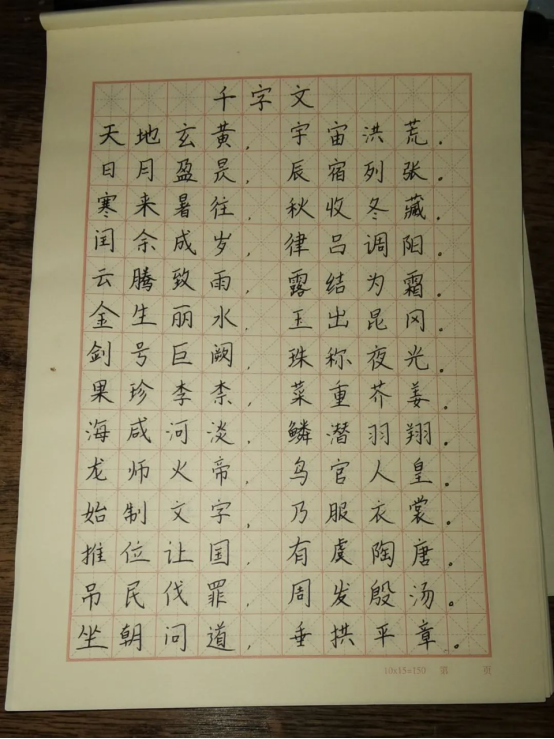 千字文
天地玄黄，宇宙洪荒。
日月盈昃，辰宿列张。
寒来暑往，秋收冬藏。
闰余成岁，律吕调阳。
云腾致雨，露结为霜。
金生丽水，玉出昆冈。
剑号巨阙，珠称夜光。
果珍李柰，菜重芥姜。
海咸河淡，鳞潜羽翔。
龙师火帝，鸟官人皇。
始制文字，乃服衣裳。
推位让国，有虞陶唐。
吊民伐罪，周发殷汤。
坐朝问道，垂拱平章。
10x15=150 第 页